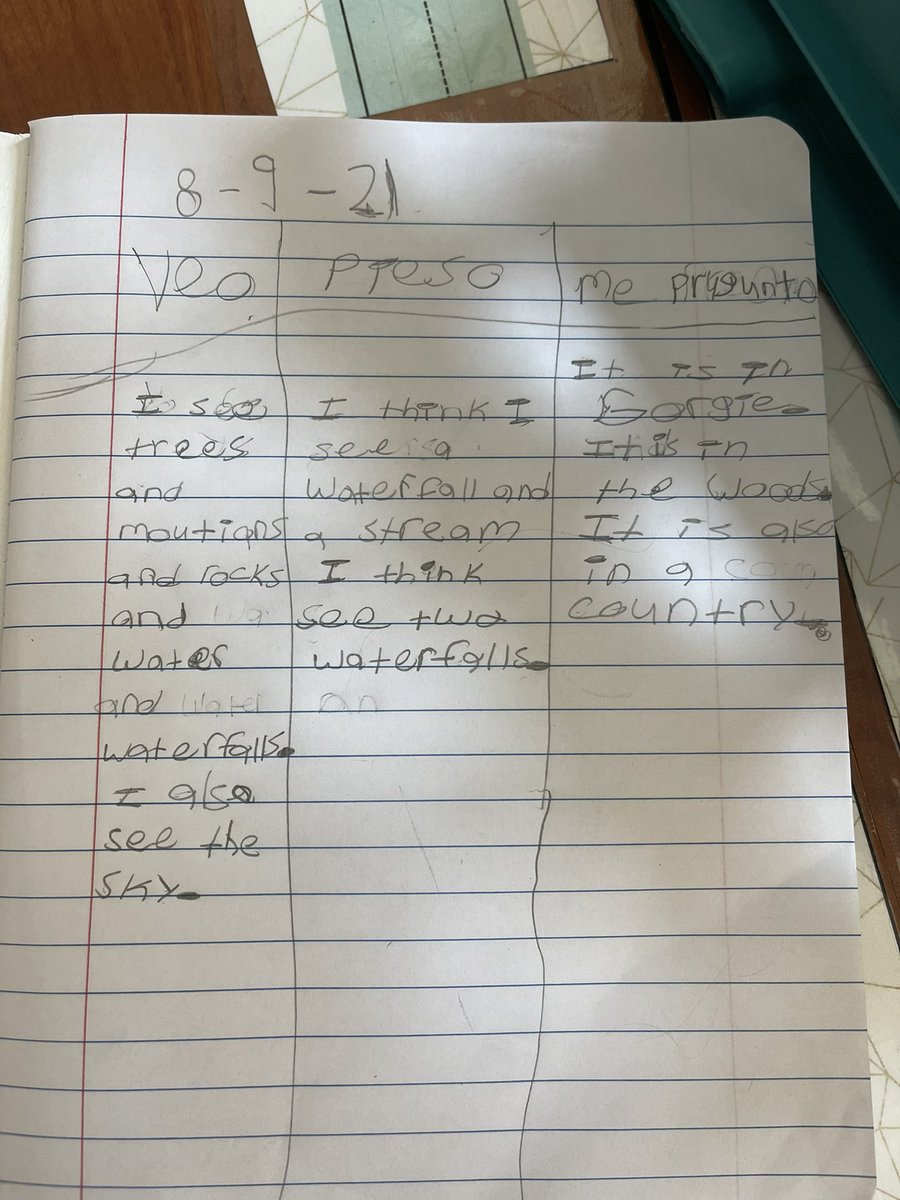 8-9-21
Veo
Pieso
Me prugunto
I see
trees
and
moutians
and rocks
and wa
water
and water
waterfalls.
I also
see the
sky.
I think I
see a
waterfall and
a stream
I think
see two
waterfalls.
an
It is in
Gorgie.
It is in
the woods.
It is also
in a coun
country.